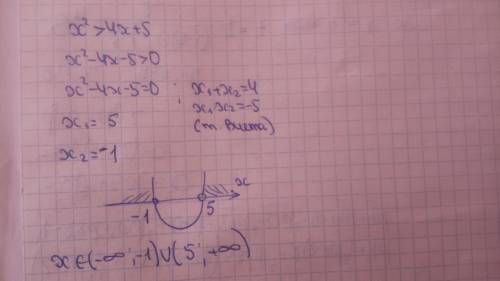 x²>4x+5
x²-4x-5>0
x²-4x-5=0 ; x₁+x₂=4
x₁x₂=-5
x₁= 5 (т. Виета)
x₂=-1
x
-1 5
x∈(-∞;-1)∪(5;+∞)